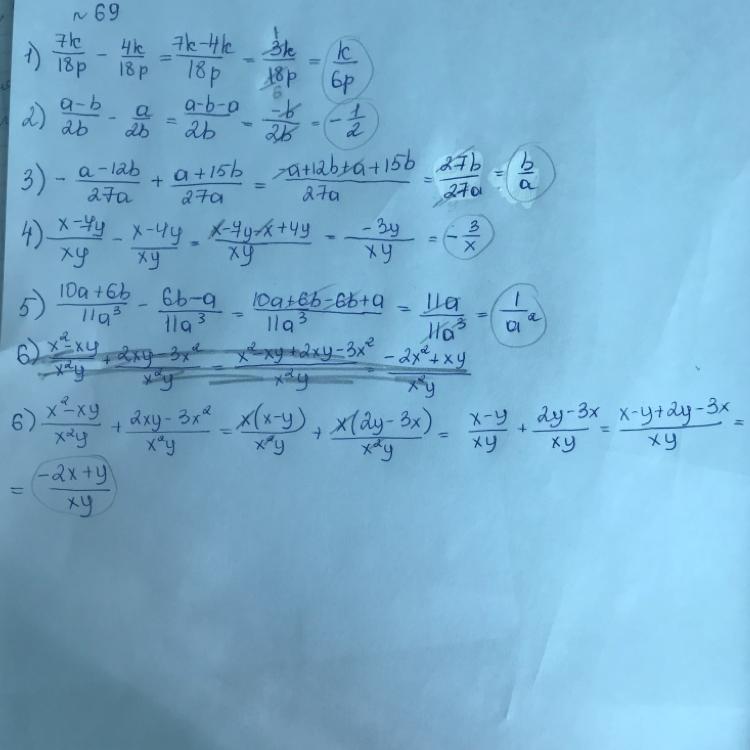 № 69
1) 7k/18p - 4k/18p = 7k-4k/18p = 3k/18p = k/6p
2) a-b/2b - a/2b = a-b-a/2b = -b/2b = -1/2
3) - a-12b/27a + a+15b/27a = -a+12b+a+15b/27a = 27b/27a = b/a
4) x-7y/xy - x-4y/xy = x-7y-x+4y/xy = -3y/xy = -3/x
5) 10a+6b/11a³ - 6b-a/11a³ = 10a+6b-6b+a/11a³ = 11a/11a³ = 1/a²
6) x²-xy/x²y + 2xy-3x²/x²y = x²-xy+2xy-3x²/x²y = -2x²+xy/x²y
6) x²-xy/x²y + 2xy-3x²/x²y = x(x-y)/x²y + x(2y-3x)/x²y = x-y/xy + 2y-3x/xy = x-y+2y-3x/xy =
= -2x+y/xy